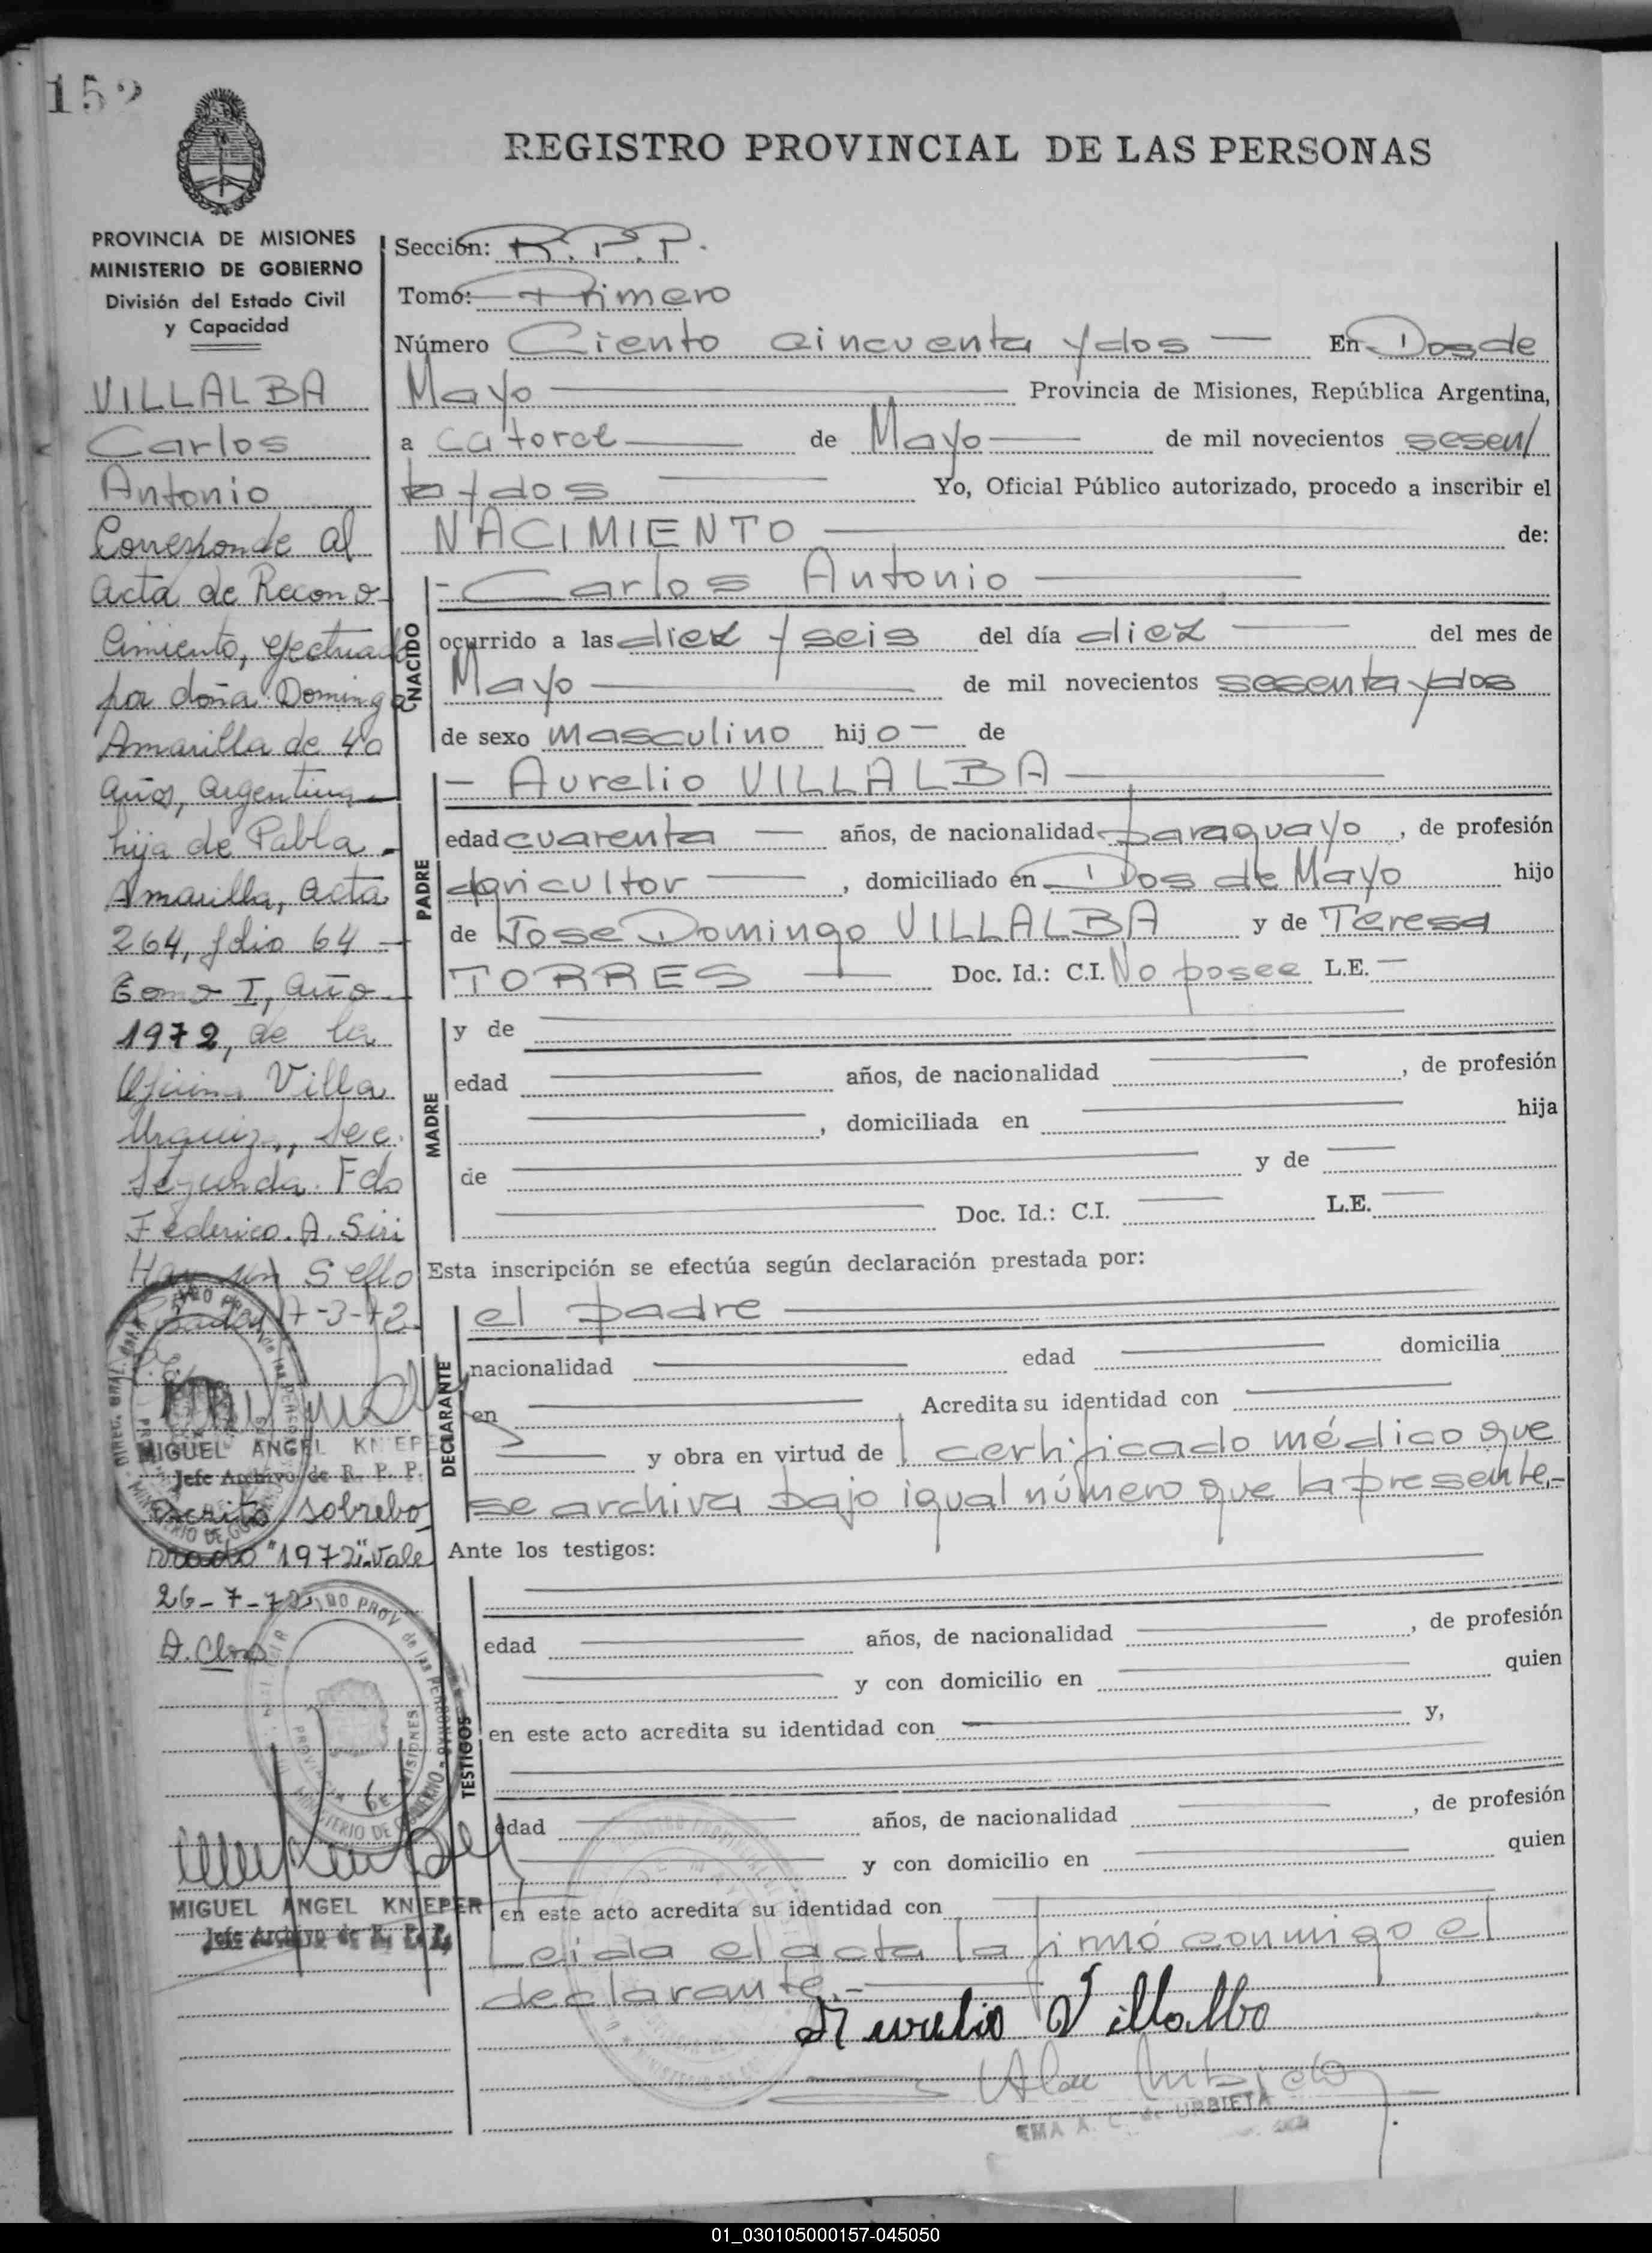 152
REGISTRO PROVINCIAL DE LAS PERSONAS
PROVINCIA DE MISIONES
MINISTERIO DE GOBIERNO
División del Estado Civil
y Capacidad
VILLALBA
Carlos
Antonio
Corresponde al
acta de Recono-
cimiento, efectuado
por doña Dominga
Amarilla de 40
años, argentina
hija de Pabla
Amarilla, acta
264, folio 64
Tomo I, año
1972, de la
Oficina Villa
Urquiza, Sec.
Segunda. Fdo
Federico. A. Siri
Hay un Sello
17-3-72
MIGUEL ANGEL KNIEPER
Jefe Archivo de R. P. P.
Escrito sobrebo
rrado "1972" Vale
26-7-72
MIGUEL ANGEL KNIEPER
Jefe Archivo de R. P. P.
Sección: R.P.P.
Tomo: Primero
Número Ciento cincuenta y dos En Dos de
Mayo Provincia de Misiones, República Argentina,
a catorce de Mayo de mil novecientos sesen/
ta y dos Yo, Oficial Público autorizado, procedo a inscribir el
NACIMIENTO de:
NACIDO
- Carlos Antonio
ocurrido a las diez y seis del día diez del mes de
Mayo de mil novecientos sesenta y dos
de sexo masculino hijo de
PADRE
- Aurelio VILLALBA
edad cuarenta años, de nacionalidad paraguayo, de profesión
agricultor, domiciliado en Dos de Mayo hijo
de Jose Domingo VILLALBA y de Teresa
TORRES Doc. Id.: C.I. No posee L.E.
MADRE
y de
edad años, de nacionalidad , de profesión
, domiciliada en hija
de y de
Doc. Id.: C.I. L.E.
Esta inscripción se efectúa según declaración prestada por:
DECLARANTE
el padre
nacionalidad edad domicilia
en Acredita su identidad con
y obra en virtud de certificado médico que
se archiva bajo igual número que la presente.-
Ante los testigos:
TESTIGOS
edad años, de nacionalidad , de profesión
y con domicilio en quien
en este acto acredita su identidad con y,
edad años, de nacionalidad , de profesión
y con domicilio en quien
en este acto acredita su identidad con
Leida el acta la firmó conmigo el
declarante.-
Aurelio Villalba
EMA A. C. de URBIETA
01_030105000157-045050